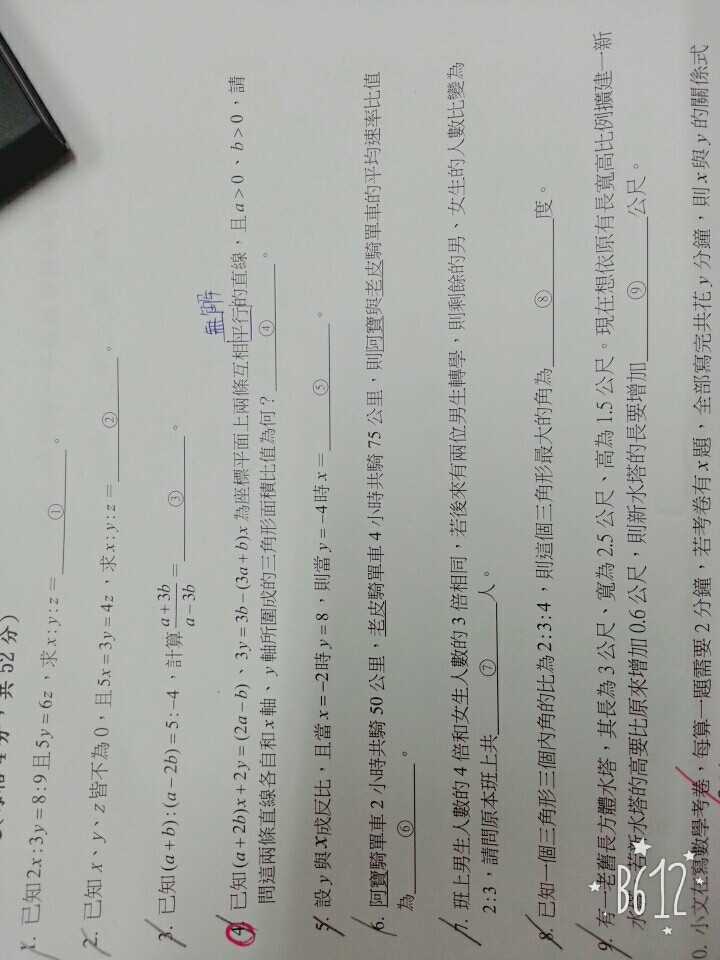 共 52 分)
1. 已知 2x:3y=8:9 且 5y=6z,求 x:y:z= ① 。
2. 已知 x、y、z 皆不為 0,且 5x=3y=4z,求 x:y:z= ② 。
3. 已知 (a+b):(a-2b)=5:-4,計算 \frac{a+3b}{a-3b} = ③ 。
無解
4. 已知 (a+2b)x+2y=(2a-b)、3y=3b-(3a+b)x 為座標平面上兩條互相平行的直線,且 a>0、b>0,請
問這兩條直線各自和 x 軸、y 軸所圍成的三角形面積比值為何? ④ 。
5. 設 y 與 x 成反比,且當 x=-2 時 y=8,則當 y=-4 時 x= ⑤ 。
6. 阿寶騎單車 2 小時共騎 50 公里,老皮騎單車 4 小時共騎 75 公里,則阿寶與老皮騎單車的平均速率比值
為 ⑥ 。
7. 班上男生人數的 4 倍和女生人數的 3 倍相同,若後來有兩位男生轉學,則剩餘的男、女生的人數比變為
2:3,請問原本班上共 ⑦ 人。
8. 已知一個三角形三個內角的比為 2:3:4,則這個三角形最大的角為 ⑧ 度。
9. 有一老舊長方體水塔,其長為 3 公尺、寬為 2.5 公尺、高為 1.5 公尺。現在想依原有長寬高比例擴建一新
水塔,若新水塔的高要比原來增加 0.6 公尺,則新水塔的長要增加 ⑨ 公尺。
0. 小文在寫數學考卷,每算一題需要 2 分鐘,若考卷有 x 題,全部寫完共花 y 分鐘,則 x 與 y 的關係式
B612